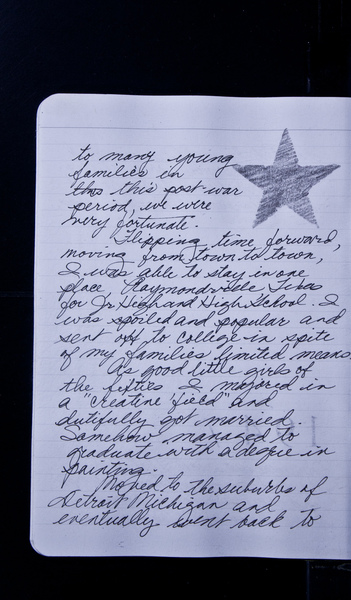 to many young
families in
this post-war
period, we were
very fortunate.
Flipping time forward,
moving from town to town,
I was able to stay in one
place Raymondville Texas
for Jr High and High School. I
was spoiled and popular and
sent off to college in spite
of my families limited means.
As good little girls of
the fifties I majored in
a "creative field" and
dutifully got married.
Somehow managed to
graduate with a degree in
painting.
Moved to the suburbs of
Detroit Michigan and
eventually went back to